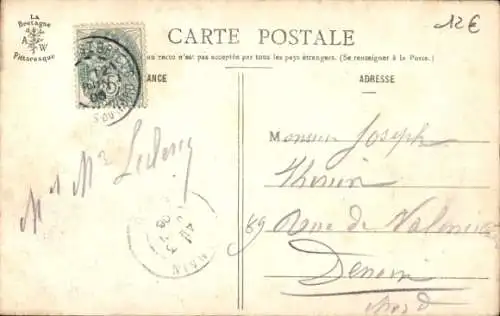 La
Bretagne
A W
Pittoresque
12€
CARTE POSTALE
recto n'est pas acceptée par tous les pays étrangers. (Se renseigner à la Poste.)
ANCE
ADRESSE
Monsieur Joseph
89 Rue de
Denain
Nord
M et Me Leclercq